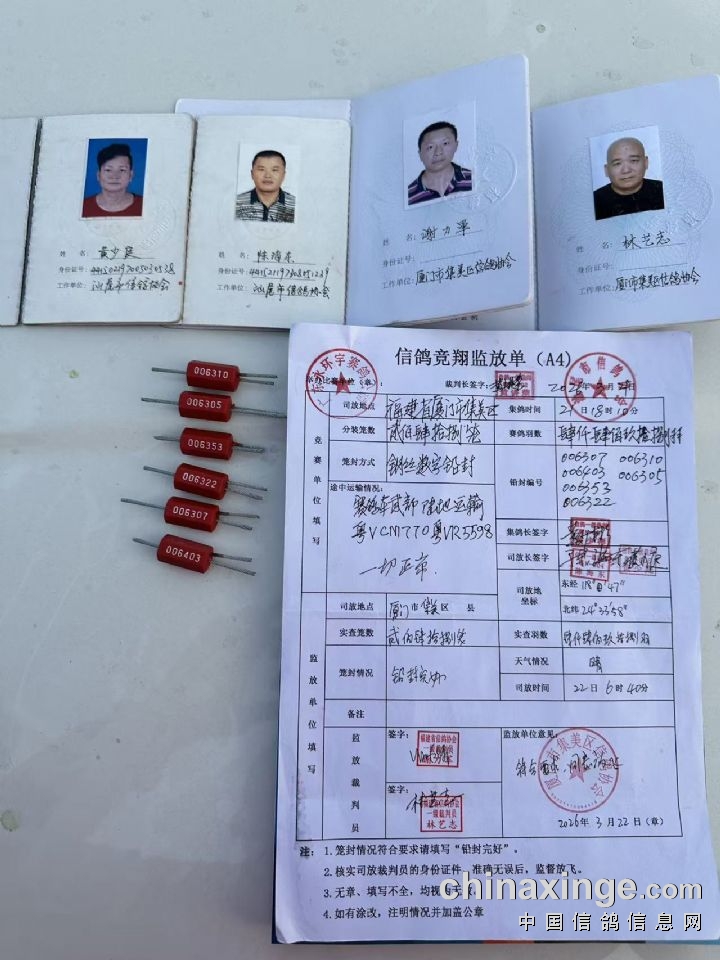 姓 名: 黄少
身份证号:
工作单位: 汕尾市信鸽协会
姓 名: 陈
身份证号:
工作单位: 汕尾市信鸽协会
姓 名: 谢力
身份证号:
工作单位: 厦门市集美区信鸽协会
姓 名: 林艺志
身份证号:
工作单位: 厦门市集美区信鸽协会
006310
006305
006353
006322
006307
006403
信鸽竞翔监放单(A4)
裁判长签字:
竞赛单位填写
司放地点 福建省厦门市集美区 集鸽时间 21日18时10分
分装笼数 贰佰肆拾捌笼 赛鸽羽数 肆仟肆佰玖拾捌羽
笼封方式 铜丝数字铅封 铅封编号 006307 006310
006403 006305
006353
006322
途中运输情况:
粤VCM770 粤VR5598
一切正常.
集鸽长签字
司放长签字
司放地坐标 东经 118° 47"
北纬 24°33'58"
监放单位填写
司放地点 厦门市集美区 县
实查笼数 贰佰肆拾捌笼 实查羽数 肆仟肆佰玖拾捌羽
笼封情况 铅封完好 天气情况 晴
司放时间 22日6时40分
备注
监放裁判员 签字: 监放单位意见:
福建省信鸽协会
签字:
一级裁判员
林艺志
2026年3月22日(章)
注: 1.笼封情况符合要求请填写"铅封完好"。
2.核实司放裁判员的身份证件,准确无误后,监督放飞。
3.无章、填写不全,均视为无效
4.如有涂改,注明情况并加盖公章
chinaxinge.com
中国信鸽信息网